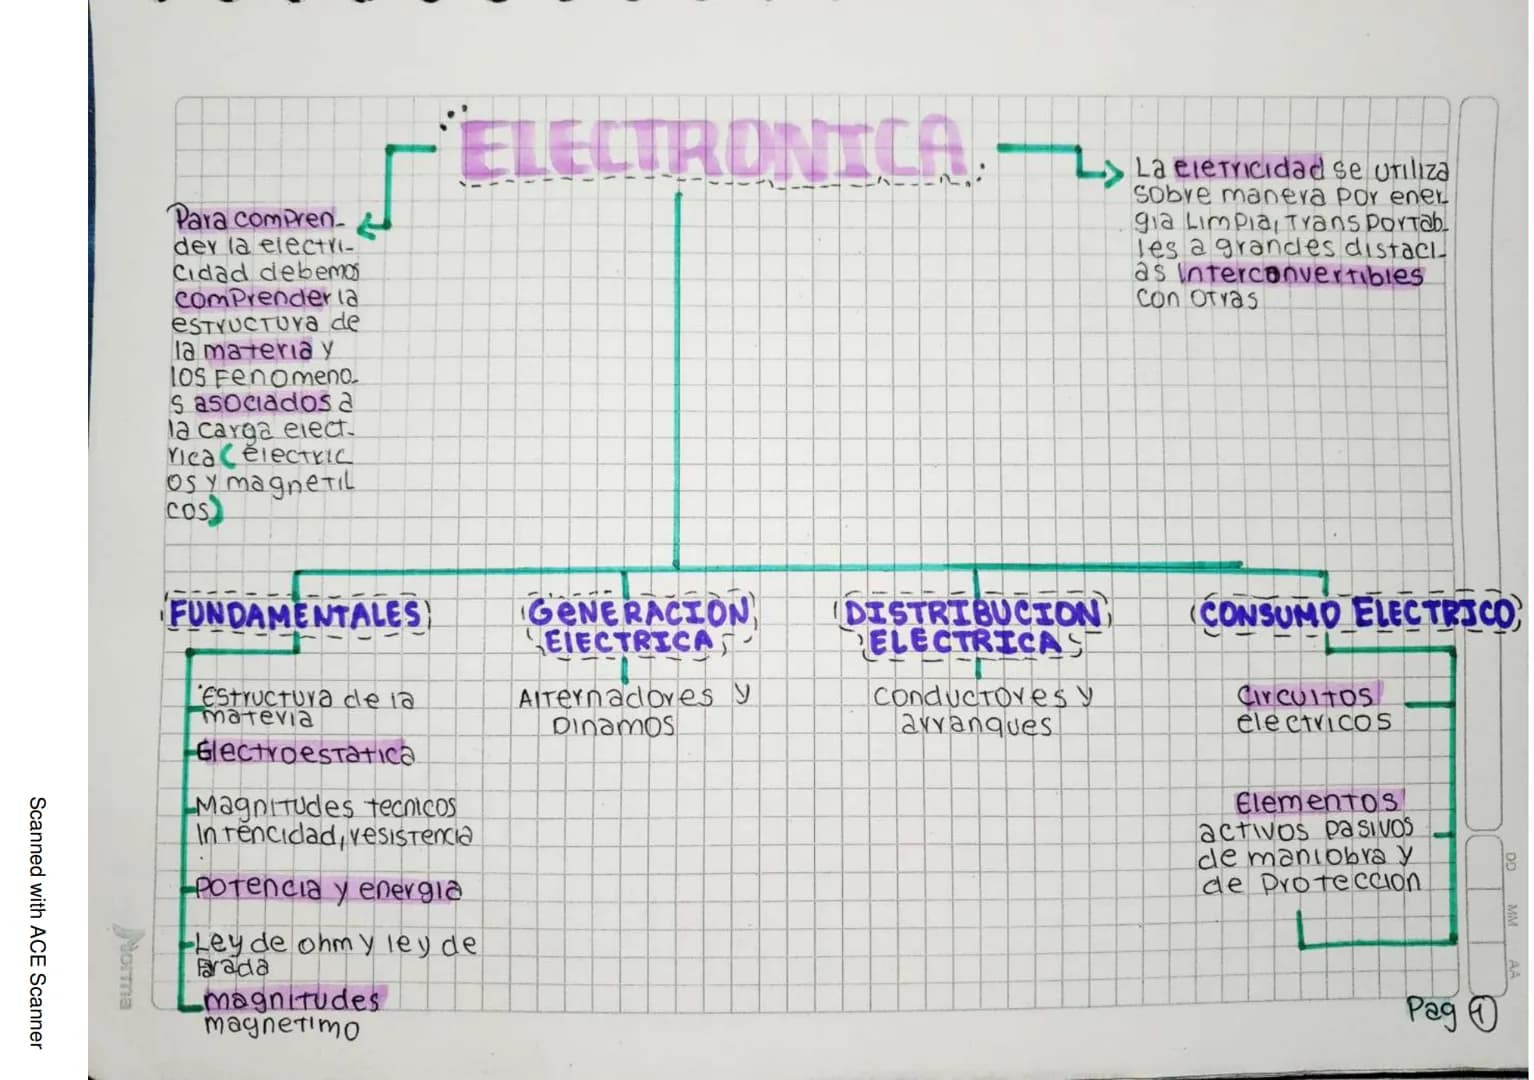 ELECTRONICA
Para compren-
der la electri-
cidad debemos
comprender la
estructura de
la materia y
los fenomeno-
s asociados a
la carga elect-
rica (electric
os y magnetil
cos)
La eletricidad se utiliza
sobre manera por ener
gia Limpia, transportab
les a grandes distaci-
as interconvertibles
con otras
FUNDAMENTALES
Estructura de la
materia
Electroestatica
Magnitudes tecnicos
Intencidad, resistencia
Potencia y energia
Ley de ohm y ley de
Farada
magnitudes
magnetimo
GENERACION
ElECTRICA
Alternadores y
Dinamos
DISTRIBUCION
ELECTRICA
conductores y
arranques
CONSUMO ELECTRICO
Circuitos
electricos
Elementos
activos pasivos
de maniobra y
de Proteccion
Pag 1
Norma
DD MM AA
Scanned with ACE Scanner